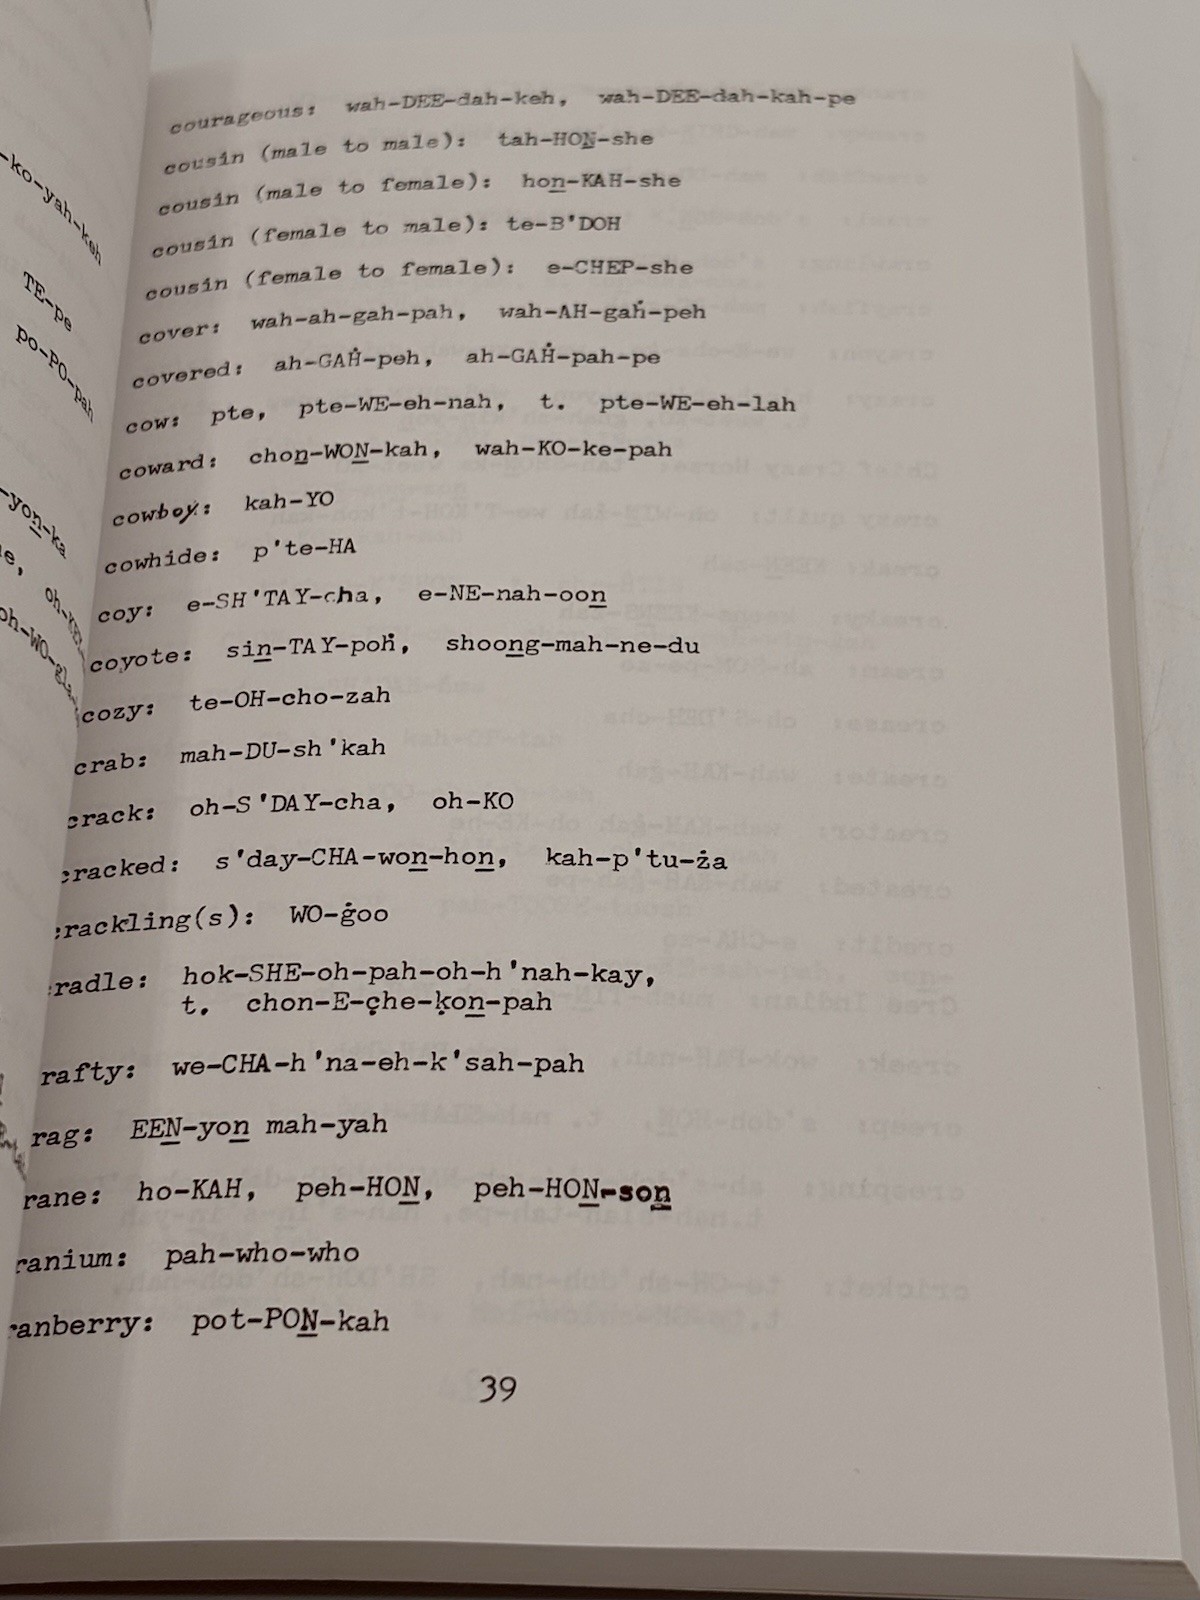 -ko-yah-keh
TE-pe
po-PO-pah
-yon̲-ka
oh-WO-gla
courageous: wah-DEE-dah-keh, wah-DEE-dah-kah-pe
cousin (male to male): tah-HON̲-she
cousin (male to female): hon̲-KAH-she
cousin (female to male): te-B'DOH
cousin (female to female): e-CHEP-she
cover: wah-ah-gah-pah, wah-AH-gaḣ-peh
covered: ah-GAḢ-peh, ah-GAḢ-pah-pe
cow: pte, pte-WE-eh-nah, t. pte-WE-eh-lah
coward: chon̲-WON̲-kah, wah-KO-ke-pah
cowboy: kah-YO
cowhide: p'te-HA
coy: e-SH'TAY-cha, e-NE-nah-oon̲
coyote: sin̲-TAY-poḣ, shoon̲g-mah-ne-du
cozy: te-OH-cho-zah
crab: mah-DU-sh'kah
crack: oh-S'DAY-cha, oh-KO
cracked: s'day-CHA-won̲-hon̲, kah-p'tu-ża
crackling(s): WO-ġoo
cradle: hok-SHE-oh-pah-oh-h'nah-kay,
t. chon-E-c̣he-ḳon̲-pah
rafty: we-CHA-h'na-eh-k'sah-pah
rag: EEN̲-yon̲ mah-yah
rane: ho-KAH, peh-HON̲, peh-HON̲-son̲
ranium: pah-who-who
ranberry: pot-PON̲-kah
39